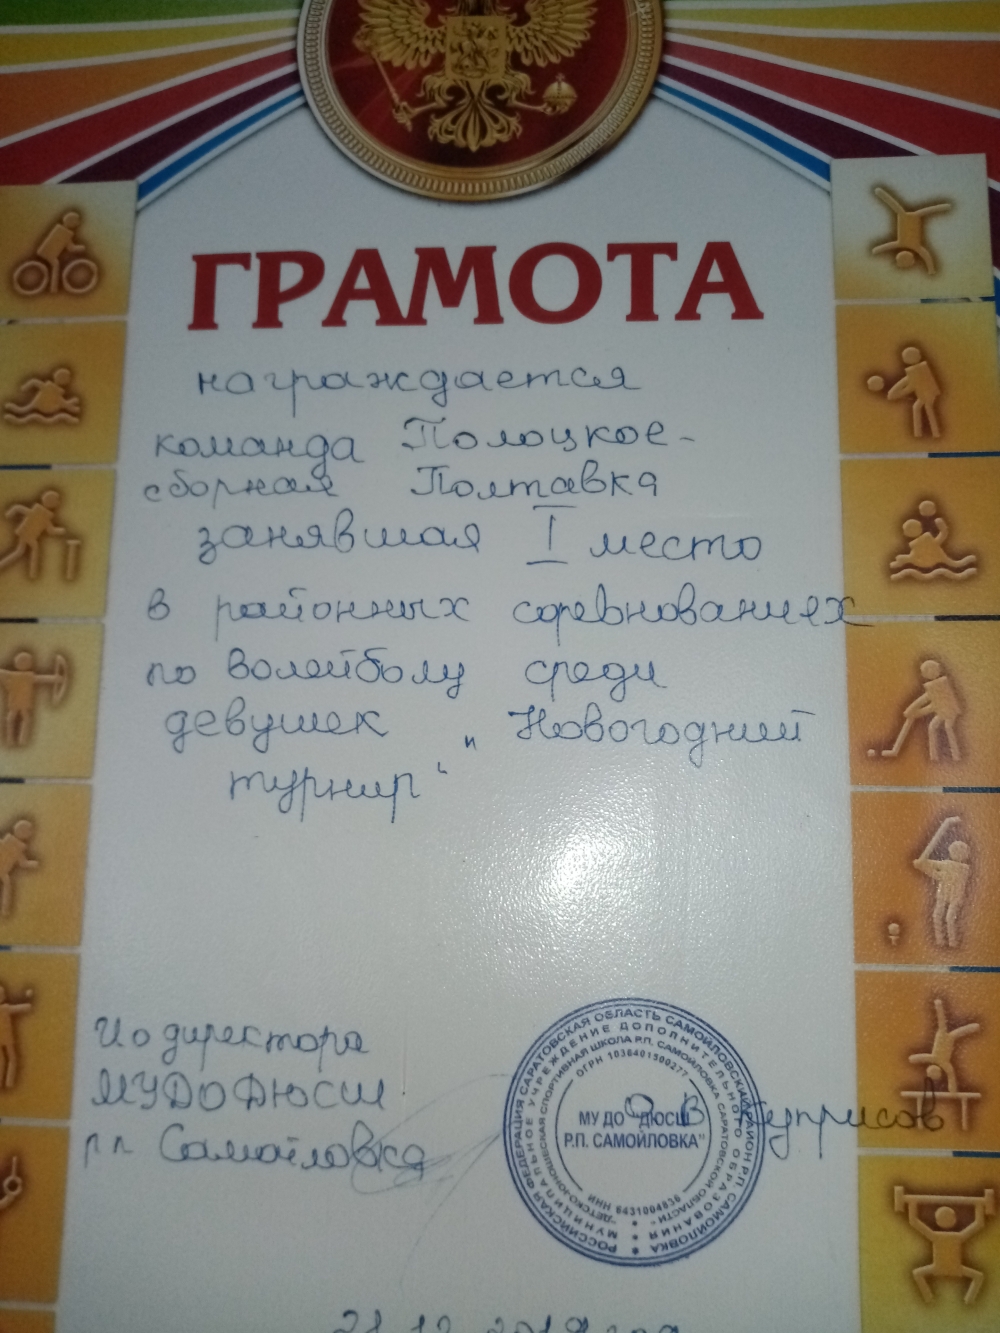 ГРАМОТА
награждается
команда Полоцкое-
сборная Полтавка
занявшая I место
в районных соревнованиях
по волейболу среди
девушек "Новогодний
турнир"
Ио директора
МУДО ДЮСШ
рп Самойловка
О В Куприсов
РОССИЙСКАЯ ФЕДЕРАЦИЯ САРАТОВСКАЯ ОБЛАСТЬ САМОЙЛОВСКИЙ РАЙОН Р.П. САМОЙЛОВКА
МУНИЦИПАЛЬНОЕ УЧРЕЖДЕНИЕ ДОПОЛНИТЕЛЬНОГО ОБРАЗОВАНИЯ
"ДЕТСКО-ЮНОШЕСКАЯ СПОРТИВНАЯ ШКОЛА Р.П. САМОЙЛОВКА САРАТОВСКОЙ ОБЛАСТИ"
ОГРН 1036401500277
МУ ДО "ДЮСШ
Р.П. САМОЙЛОВКА"
ИНН 6431004836
21.12.2019 год